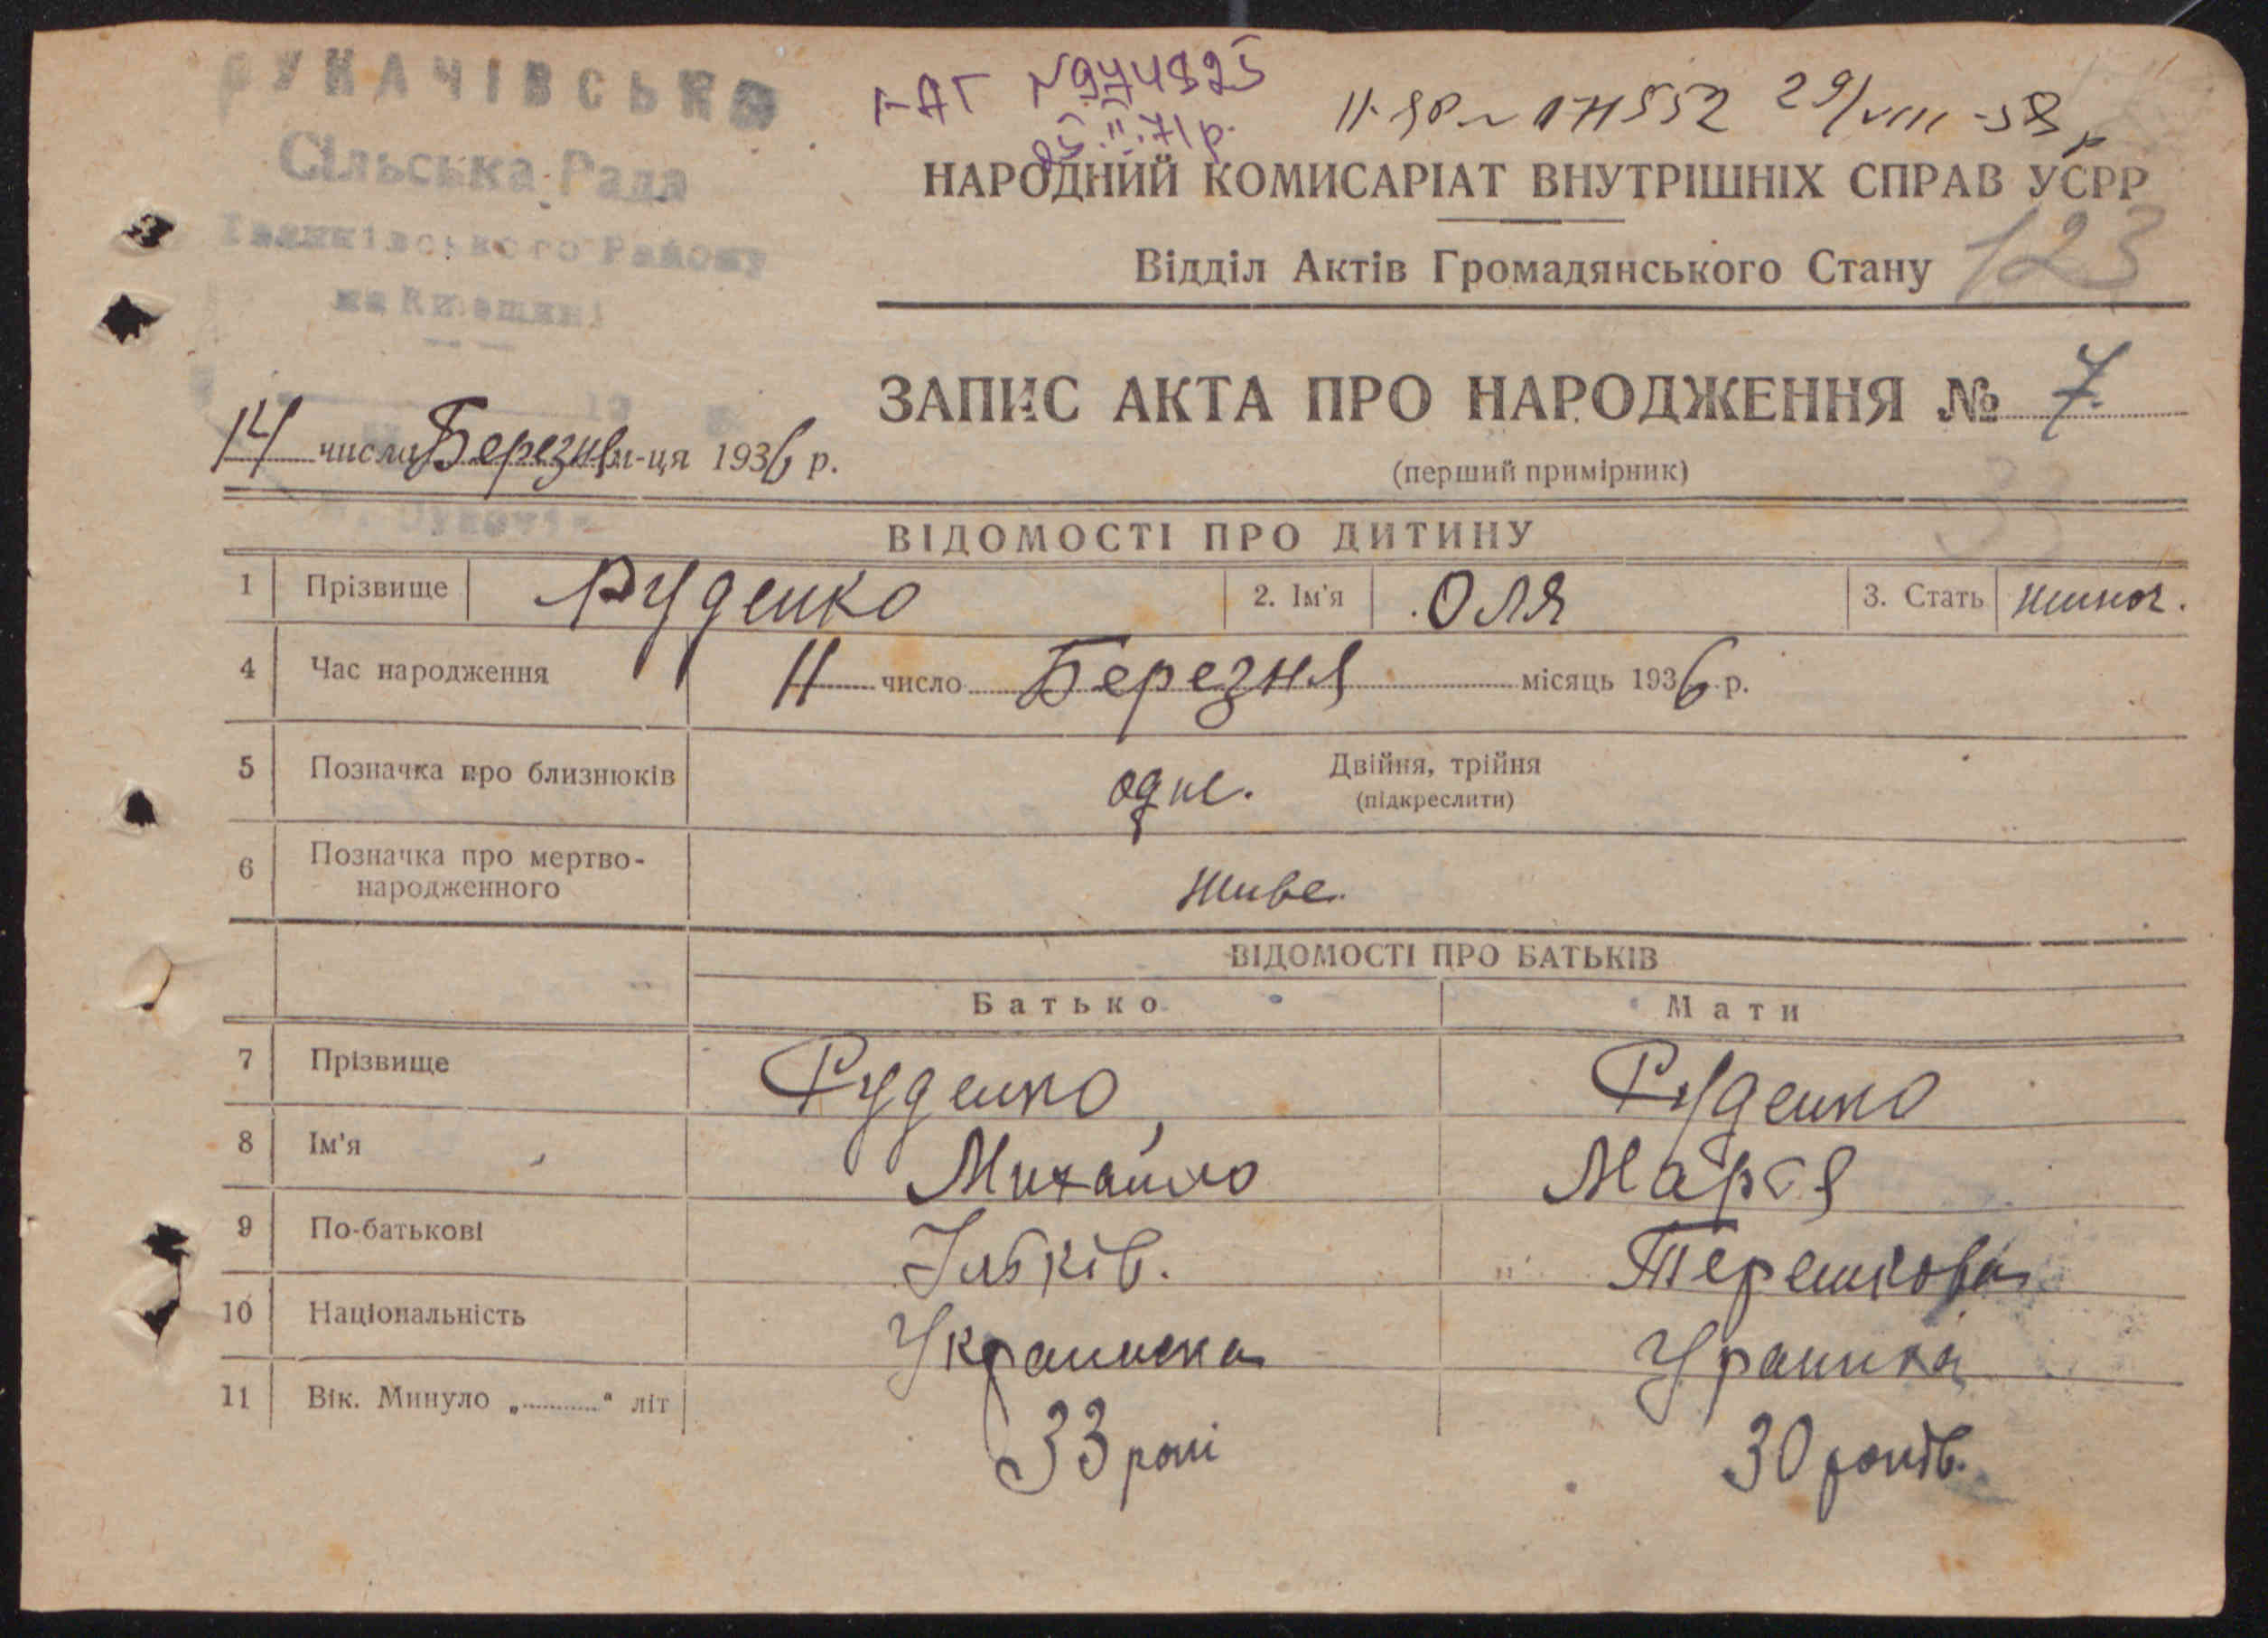 Сільська Рада
Іванківського Району
на Київщині
НАРОДНИЙ КОМИСАРІАТ ВНУТРІШНІХ СПРАВ УСРР
123
Відділ Актів Громадянського Стану
ЗАПИС АКТА ПРО НАРОДЖЕННЯ № 7
14 числа Березня м-ця 1936 р.
(перший примірник)
ВІДОМОСТІ ПРО ДИТИНУ
1 Прізвище Руденко 2. Ім'я Оля 3. Стать жиноч.
4 Час народження 11 число Березня місяць 1936 р.
5 Позначка про близнюків одне. Двійня, трійня
(підкреслити)
6 Позначка про мертво-
народженного живе.
ВІДОМОСТІ ПРО БАТЬКІВ
Батько Мати
7 Прізвище Руденко Руденко
8 Ім'я Михайло Марія
9 По-батькові Ільків. Терешкова
10 Національність Украинска Ураинка
11 Вік. Минуло „ “ літ 33 рокі 30 років.